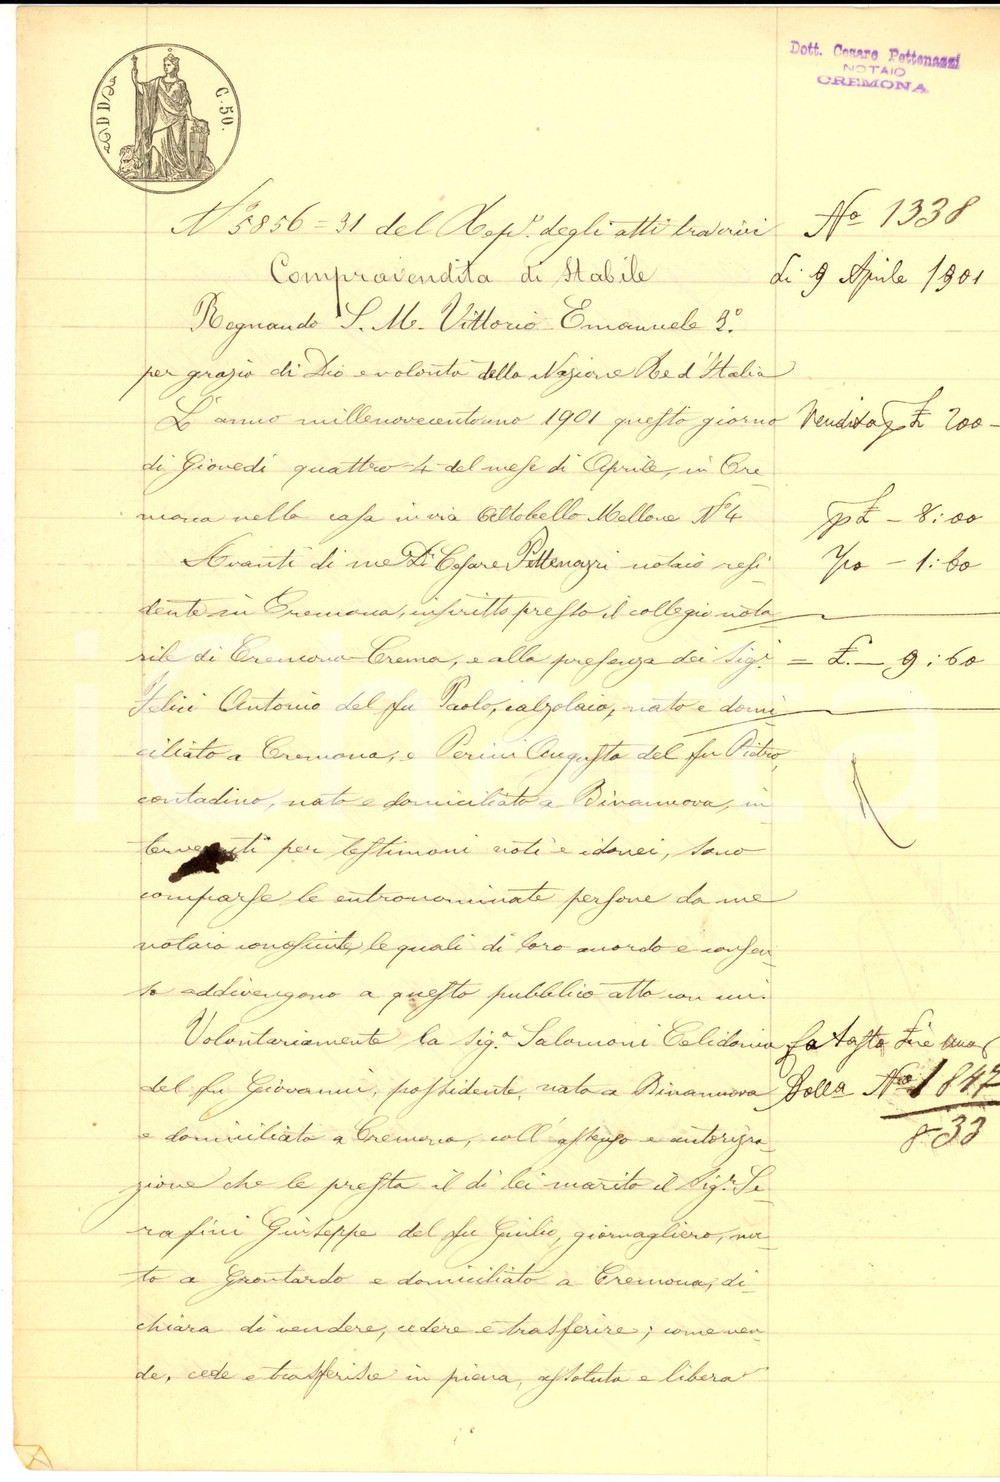 Dott. Cesare Pettenazzi
NOTAIO
CREMONA
C. 50.
N.º 5856=31 del Rep.º degli atti tra vivi
Nº 1338
Compravendita di Stabile
di 9 Aprile 1901
Regnando S. M. Vittorio Emanuele 3.º
per grazia di Dio e volontà della Nazione Re d'Italia
L'anno millenovecentouno 1901 questo giorno
Vendita p £ 200-
di Giovedì quattro 4 del mese di Aprile, in Cre-
mona nella casa in via Altobello Mellone Nº 4
p £ - 8:00
Avanti di me Dr Cesare Pettenazzi notaio resi-
- 1:60
dente in Cremona, inscritto presso il collegio nota
rile di Cremona-Crema, e alla presenza dei Sig.i
= £. - 9:60
Felici Antonio del fu Paolo, calzolaio, nato e domi
ciliato a Cremona, e Perini Augusto del fu Pietro,
contadino, nato e domiciliato a Binanuova, in
tervenuti per testimoni noti e idonei, sono
comparse le entronominate persone da me
notaio conosciute, le quali di loro accordo e consen-
so addivengono a questo pubblico atto con cui.
Volontariamente la Sig.a Salomoni Celidonia
fa Tassa Lire
del fu Giovanni, possidente, nata a Binanuova
Bolla Nº 1847
e domiciliata a Cremona, coll'assenso e autorizza-
833
zione che le presta il di lei marito il Sig.r Se-
rafini Giuseppe del fu Giulio, giornagliero, na-
to a Grontardo e domiciliato a Cremona, di-
chiara di vendere, cedere e trasferire; come ven-
de, cede e trasferisce in piena, assoluta e libera